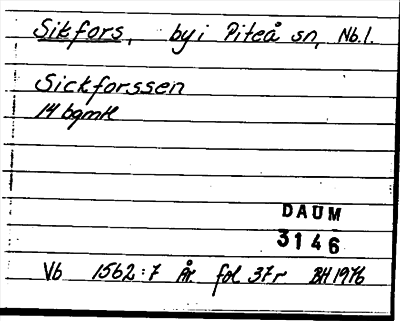 Sikfors, by i Piteå sn, Nb.l.
Sickforssen
14 bgmtl
DAUM
3146
Vb 1562:7 År. fol 37r BH 1976